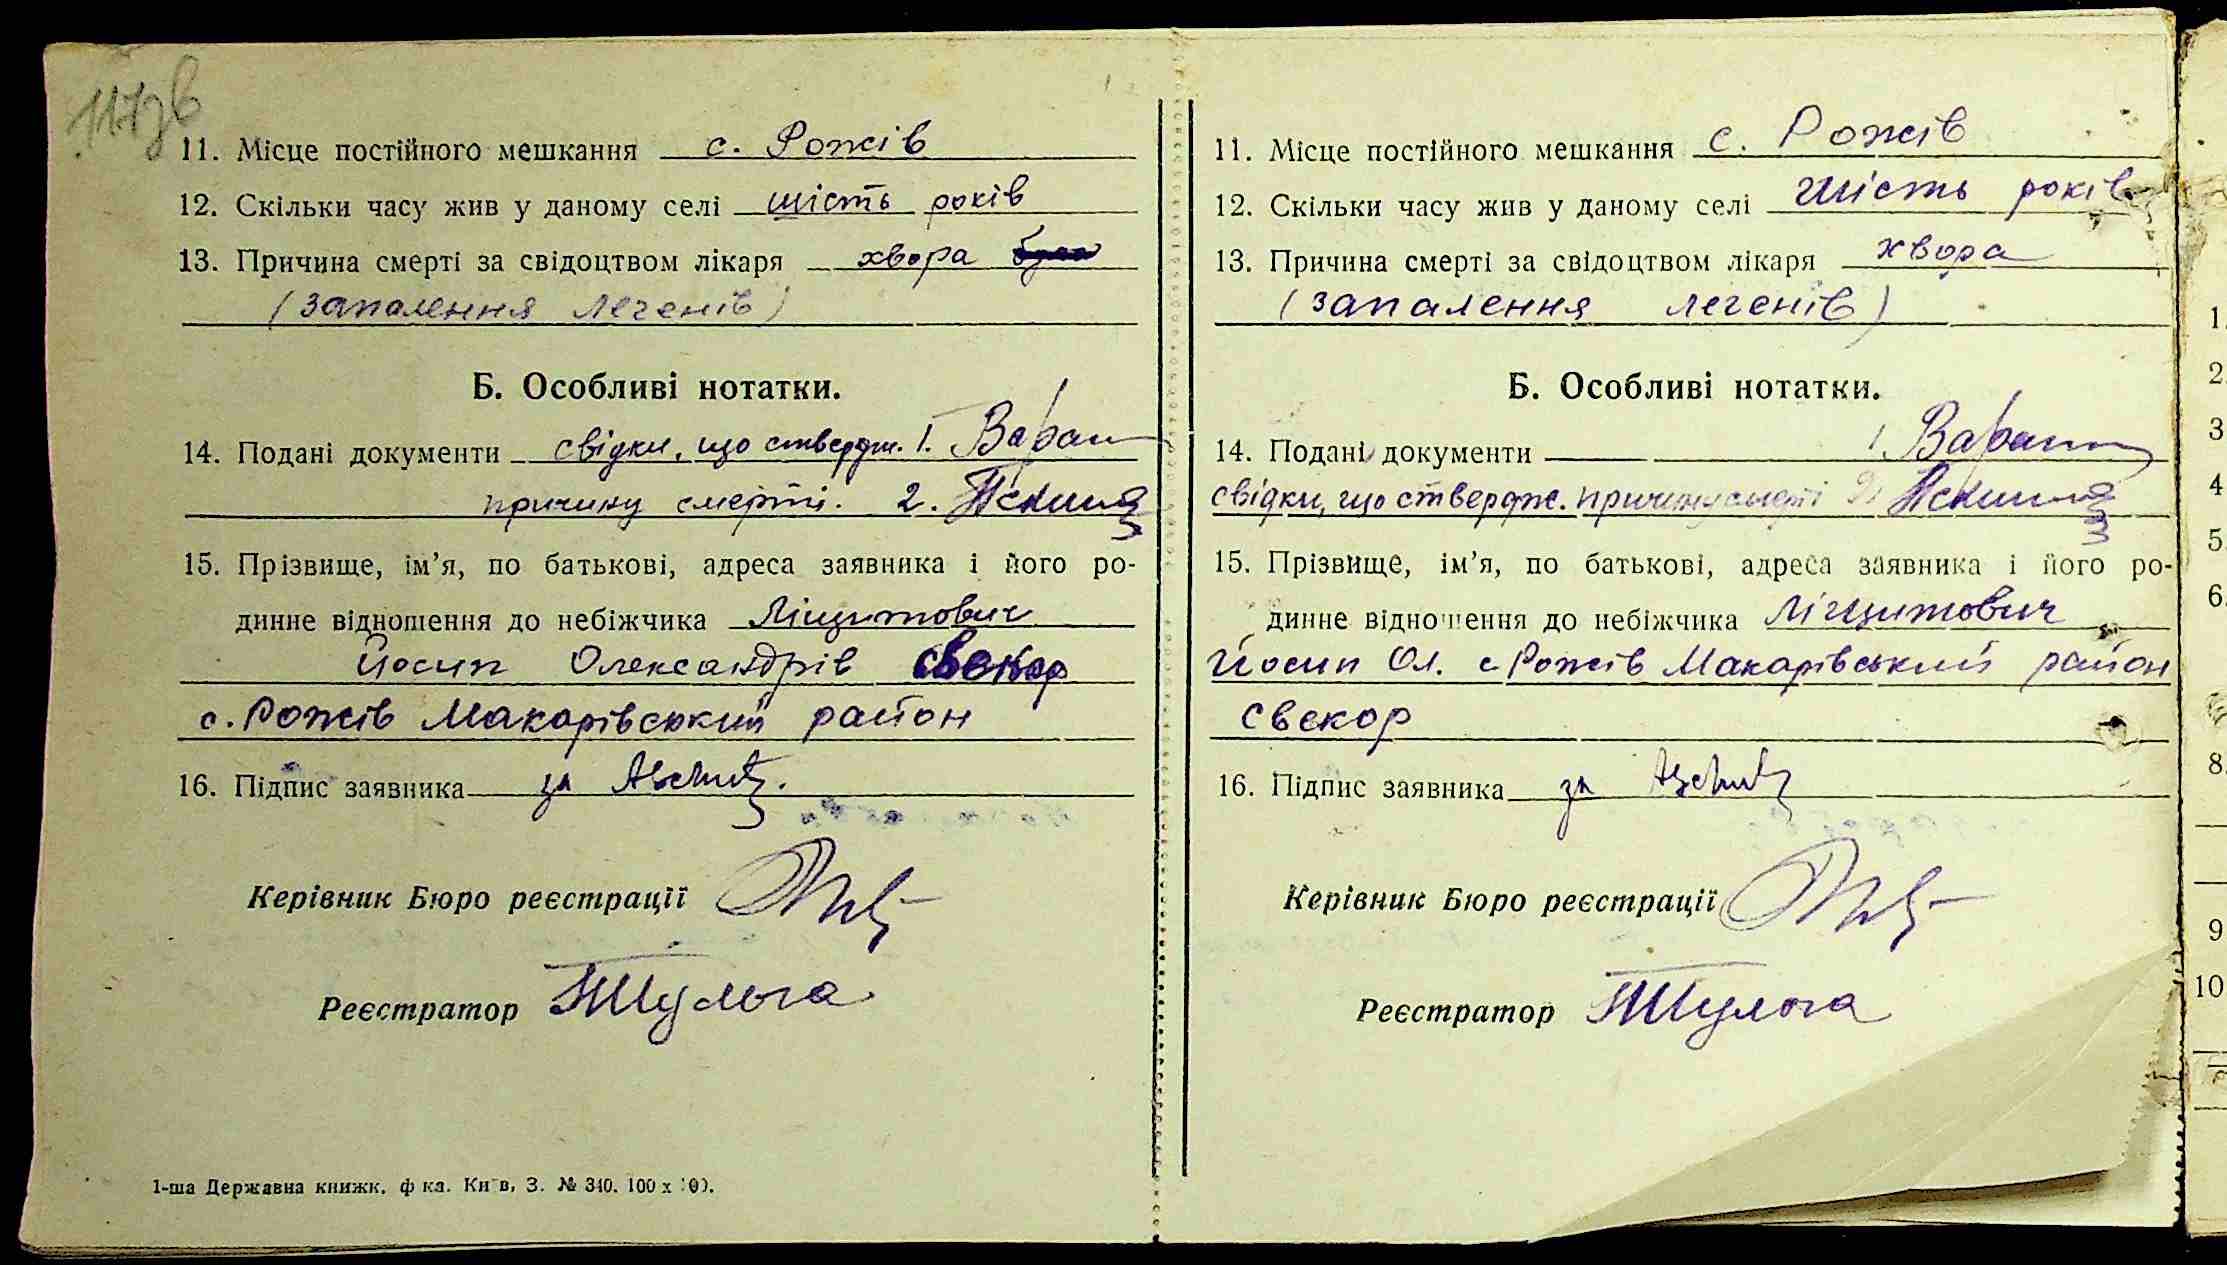 11. Місце постійного мешкання с. Рожів
12. Скільки часу жив у даному селі шість років
13. Причина смерті за свідоцтвом лікаря хвора
(запалення легенів)
Б. Особливі нотатки.
14. Подані документи свідки, що ствердж. 1.
причину смерті. 2.
15. Прізвище, ім'я, по батькові, адреса заявника і його ро-
динне відношення до небіжчика
Йосип Олександрів свекор
с. Рожів Макарівський район
16. Підпис заявника за
Керівник Бюро реєстрації
Реєстратор
1-ша Державна книжк. ф-ка. Київ, З. № 340. 100 х
11. Місце постійного мешкання с. Рожів
12. Скільки часу жив у даному селі шість років
13. Причина смерті за свідоцтвом лікаря хвора
(запалення легенів)
Б. Особливі нотатки.
14. Подані документи 1.
свідки, що ствердж. причину смерті 2.
15. Прізвище, ім'я, по батькові, адреса заявника і його ро-
динне відношення до небіжчика
Йосип Ол. с Рожів Макарівський район
свекор
16. Підпис заявника за
Керівник Бюро реєстрації
Реєстратор
1.
2
3
4
5.
6.
8.
9
10